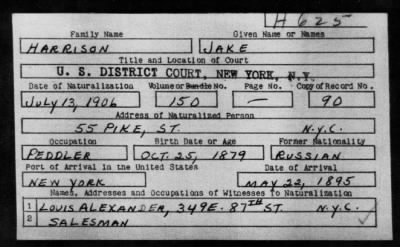 H 625
Family Name Given Name or Names
HARRISON JAKE
Title and Location of Court
U. S. DISTRICT COURT, NEW YORK, N.Y.
Date of Naturalization Volume or Bundle No. Page No. Copy of Record No.
JULY 13, 1906 150 — 90
Address of Naturalized Person
55 PIKE, ST. N.Y.C.
Occupation Birth Date or Age Former Nationality
PEDDLER OCT. 25, 1879 RUSSIAN
Port of Arrival in the United States Date of Arrival
NEW YORK MAY 22, 1895
Names, Addresses and Occupations of Witnesses to Naturalization
1 LOUIS ALEXANDER, 349 E. 87TH ST. N.Y.C.
2 SALESMAN